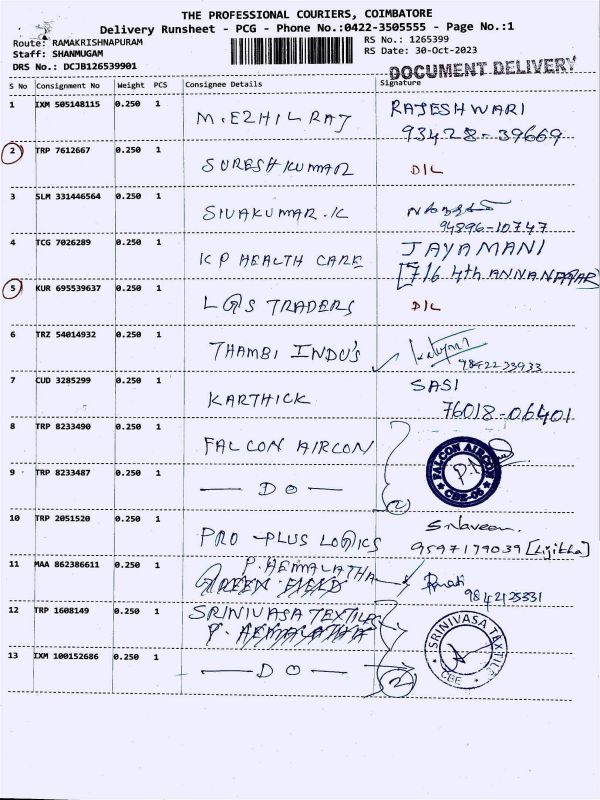 THE PROFESSIONAL COURIERS, COIMBATORE
Delivery Runsheet - PCG - Phone No.:0422-3505555 - Page No.:1
Route: RAMAKRISHNAPURAM
RS No.: 1265399
Staff: SHANMUGAM
RS Date: 30-Oct-2023
DRS No.: DCJB126539901
DOCUMENT DELIVERY
S No Consignment No Weight PCS Consignee Details Signature
1 IXM 505148115 0.250 1 M.EZHILRAJ RAJESHWARI
93428-39669
2 TRP 7612667 0.250 1 SURESHKUMAR D/L
3 SLM 331446564 0.250 1 SIVAKUMAR.K
94896-10747
4 TCG 7026289 0.250 1 KP HEALTH CARE JAYAMANI
[716 4th ANNANAGAR
5 KUR 695539637 0.250 1 LGS TRADERS D/L
6 TRZ 54014932 0.250 1 THAMBI INDU'S
9842233933
7 CUD 3285299 0.250 1 KARTHICK SASI
76018-06401
8 TRP 8233490 0.250 1 FALCON AIRCON
FALCON AIRCON
CBE-06
9 TRP 8233487 0.250 1 — DO — 2
10 TRP 2051520 0.250 1 PRO-PLUS LOGICS S.Naveen.
9597179039 [Lijikha]
11 MAA 862386611 0.250 1 P.HEMALATHA
GREEN FIELD
9842125331
12 TRP 1608149 0.250 1 SRINIVASA TEXTILE
P. HEMALATHA
SRINIVASA TEXTILE
CBE
13 IXM 100152686 0.250 1 — DO — 2